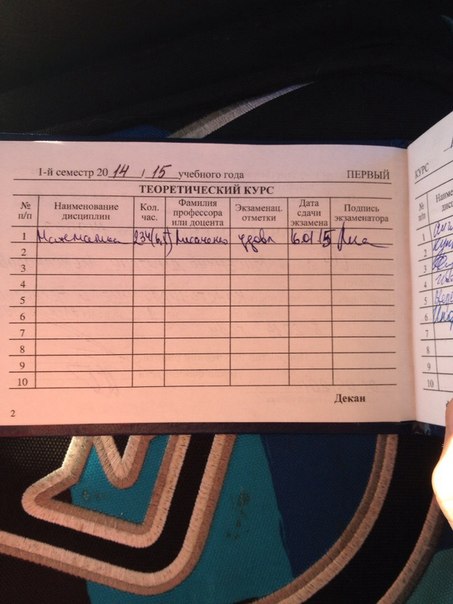 1-й семестр 2014 / 15 учебного года ПЕРВЫЙ
ТЕОРЕТИЧЕСКИЙ КУРС
№ п/п Наименование дисциплин Кол. час. Фамилия профессора или доцента Экзаменац. отметки Дата сдачи экзамена Подпись экзаменатора
1 Математика 234 удовл
2
3
4
5
6
7
8
9
10
Декан
2
КУРС
№ п/п
1
2
3
4
5
6
7
8
9
10